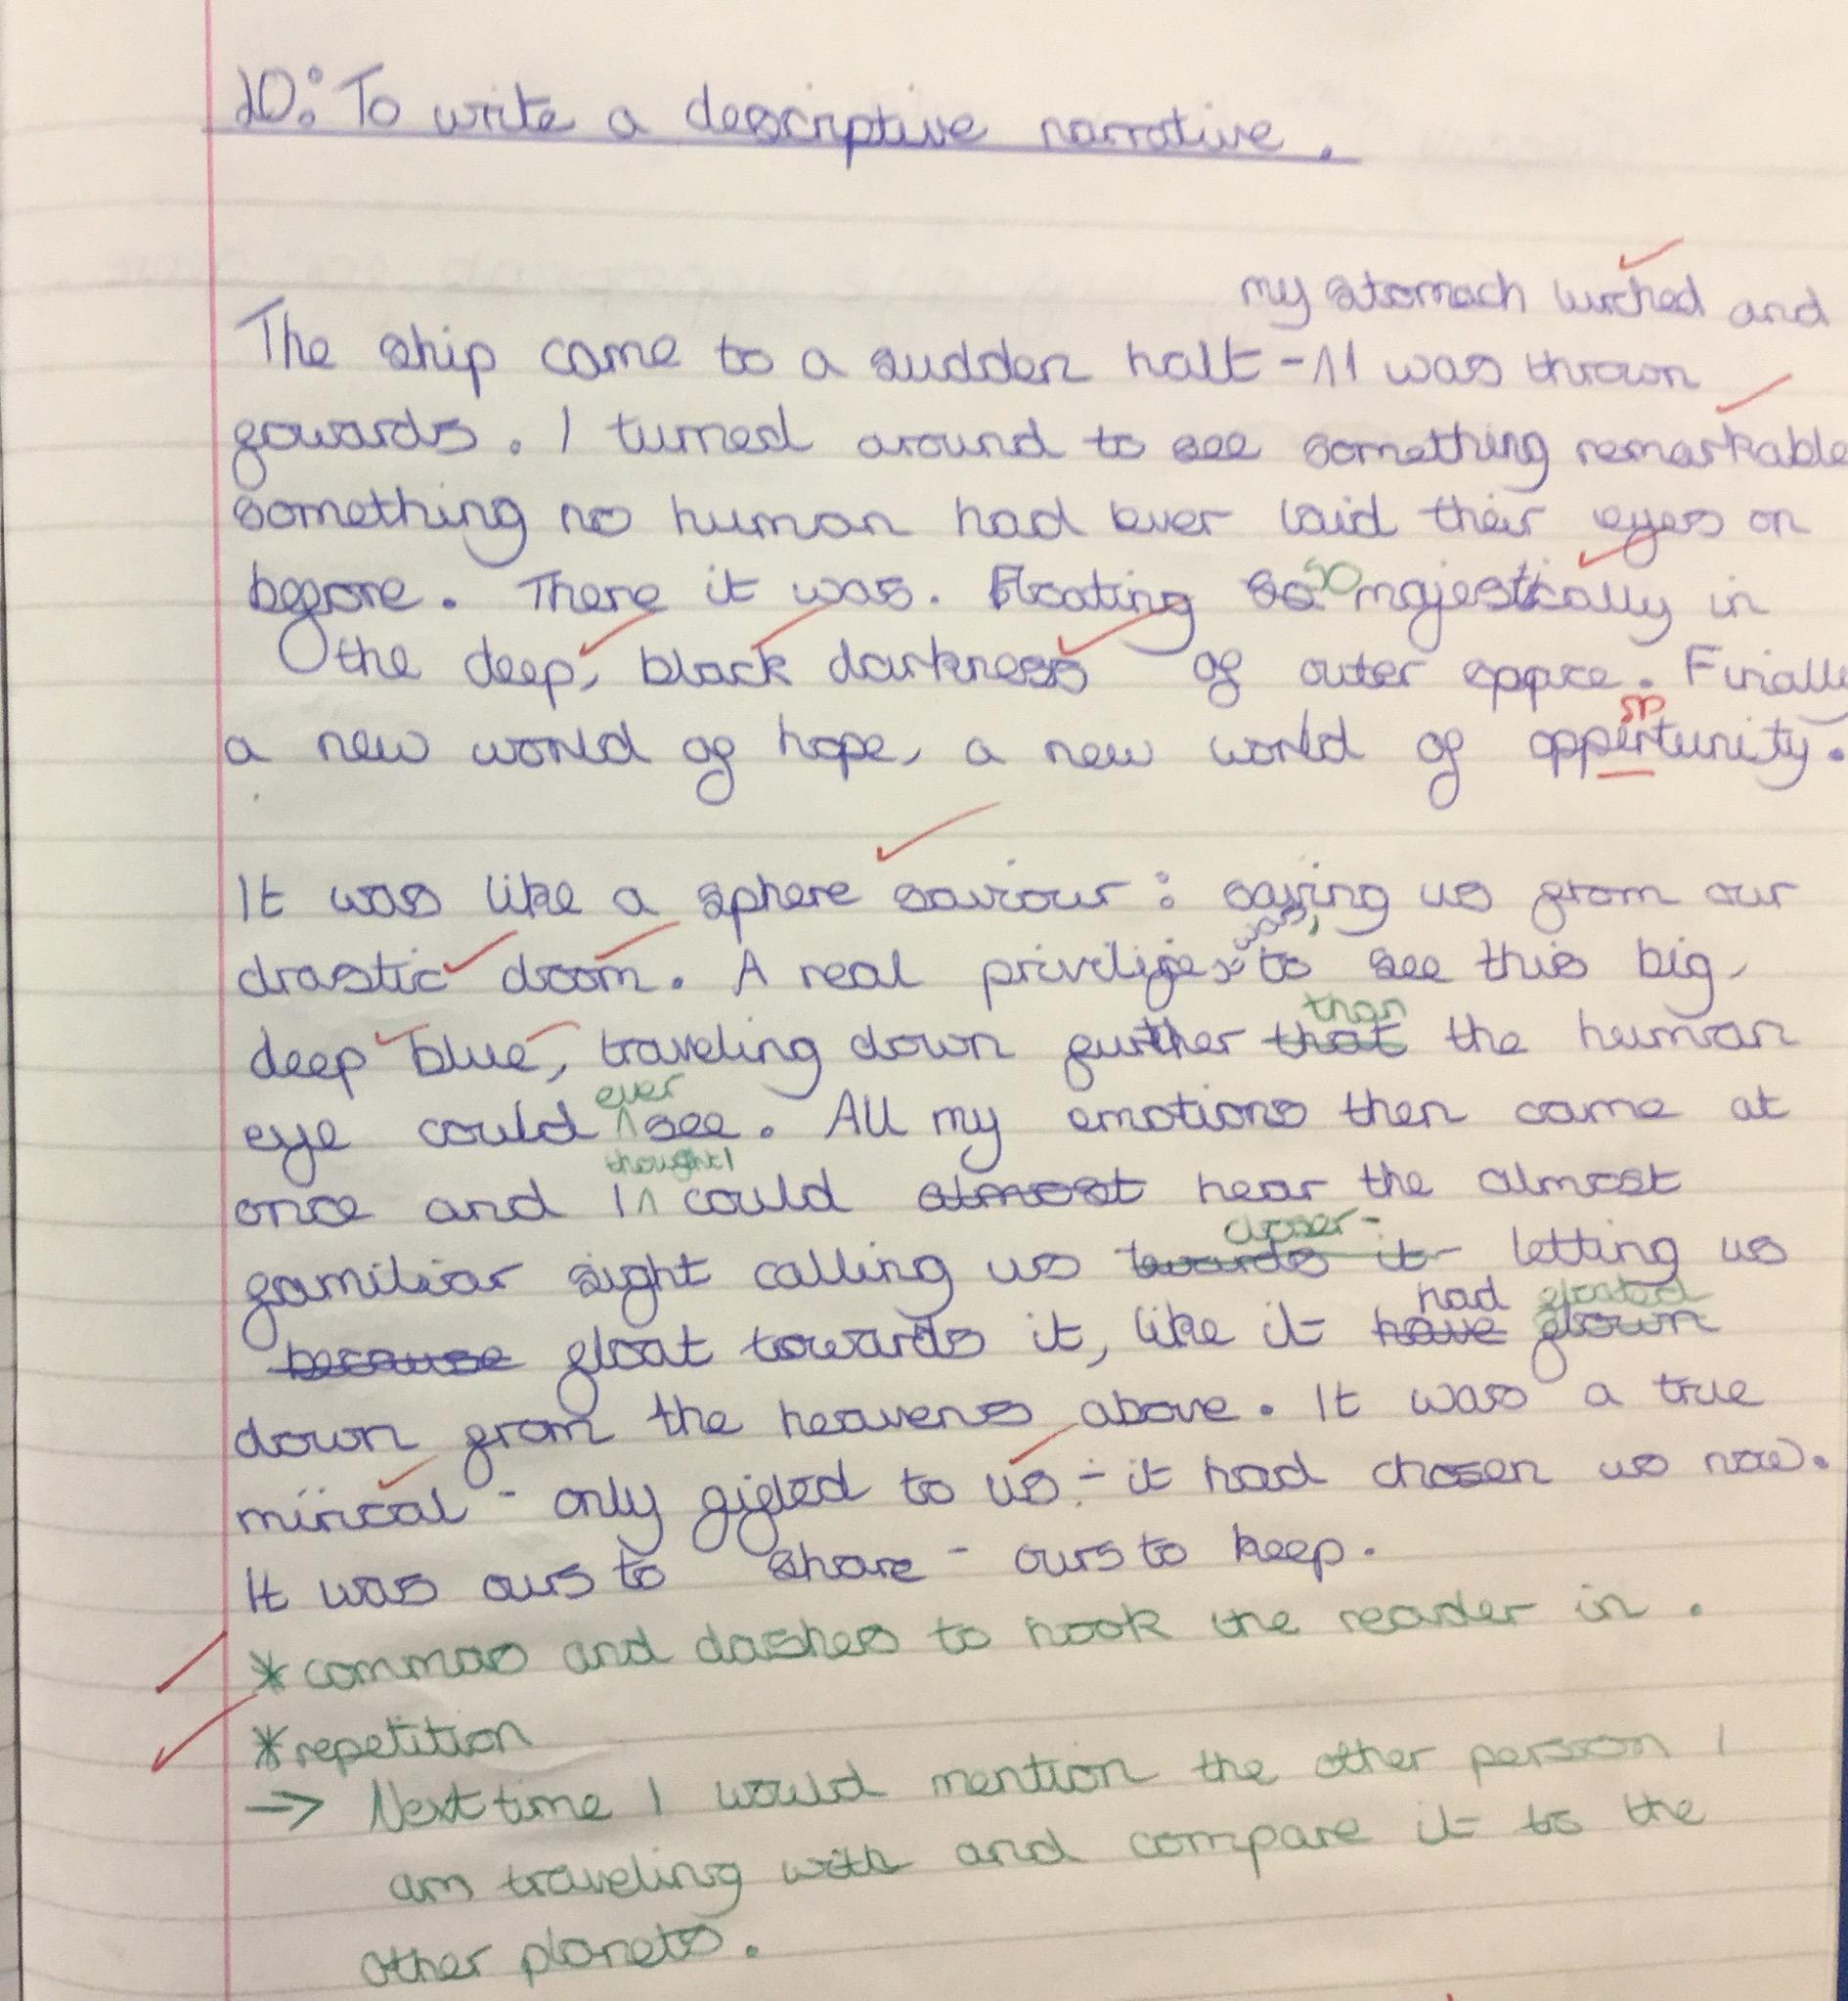 LO: To write a descriptive narrative.
my stomach lurched and
The ship came to a sudden halt - ^ I was thrown
fowards. I turned around to see something remarkable
something no human had ever laid their eyes on
before. There it was. Floating so majestically in
the deep, black darkness of outer space. Finally
sp
a new world of hope, a new world of oppertunity.
It was like a sphere saviour : saving us from our
drastic doom. A real privilige, was, to see this big,
than
deep blue, traveling down further that the human
ever
eye could ^ see. All my emotions then came at
thought I
once and I ^ could almost hear the almost
closer -
familiar sight calling us towards it - letting us
had floated
because float towards it, like it have flown
down from the heavens above. It was a true
mirical - only gifted to us - it had chosen us now.
It was ours to share - ours to keep.
* commas and dashes to hook the reader in.
* repetition
→ Next time I would mention the other person I
am traveling with and compare it to the
other planets.